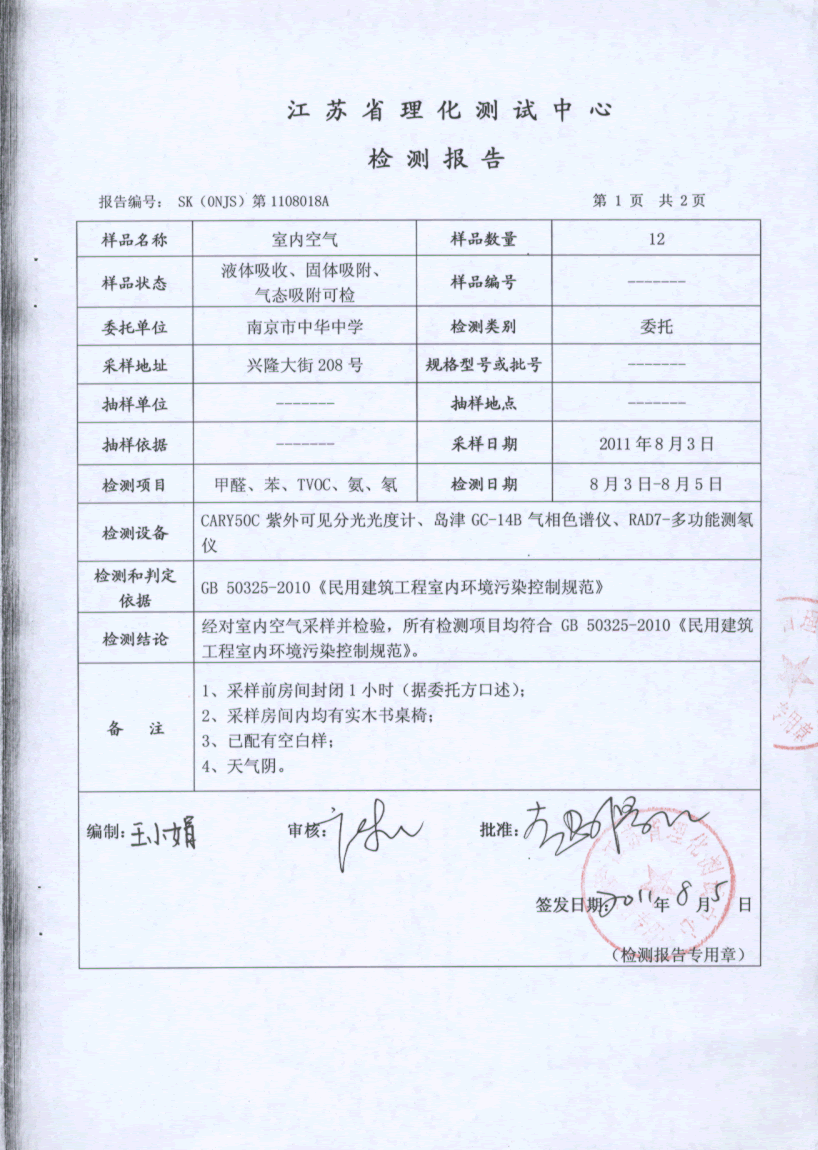 江苏省理化测试中心
检测报告
报告编号： SK（0NJS）第1108018A 第 1 页 共 2 页
样品名称 室内空气 样品数量 12
样品状态 液体吸收、固体吸附、
气态吸附可检 样品编号 -------
委托单位 南京市中华中学 检测类别 委托
采样地址 兴隆大街 208 号 规格型号或批号 -------
抽样单位 ------- 抽样地点 -------
抽样依据 ------- 采样日期 2011 年 8 月 3 日
检测项目 甲醛、苯、TVOC、氨、氡 检测日期 8 月 3 日-8 月 5 日
检测设备 CARY50C 紫外可见分光光度计、岛津 GC-14B 气相色谱仪、RAD7-多功能测氡
仪
检测和判定
依据 GB 50325-2010《民用建筑工程室内环境污染控制规范》
检测结论 经对室内空气采样并检验，所有检测项目均符合 GB 50325-2010《民用建筑
工程室内环境污染控制规范》。
备 注 1、采样前房间封闭 1 小时（据委托方口述）；
2、采样房间内均有实木书桌椅；
3、已配有空白样；
4、天气阴。
编制：王小娟 审核： 批准：
签发日期：2011 年 8 月 5 日
（检测报告专用章）